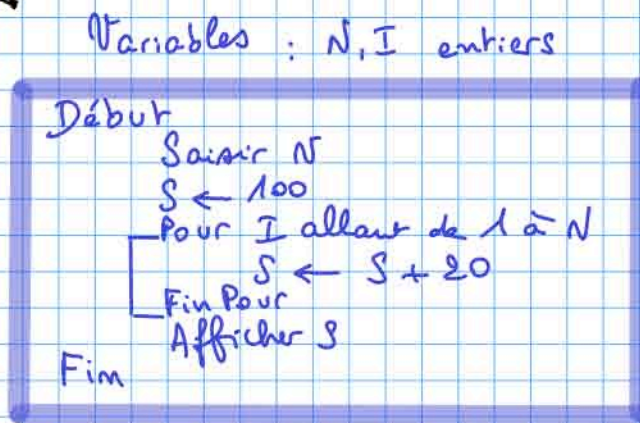 Variables : N, I entiers
Début
Saisir N
S ← 100
Pour I allant de 1 à N
S ← S + 20
Fin Pour
Afficher S
Fin